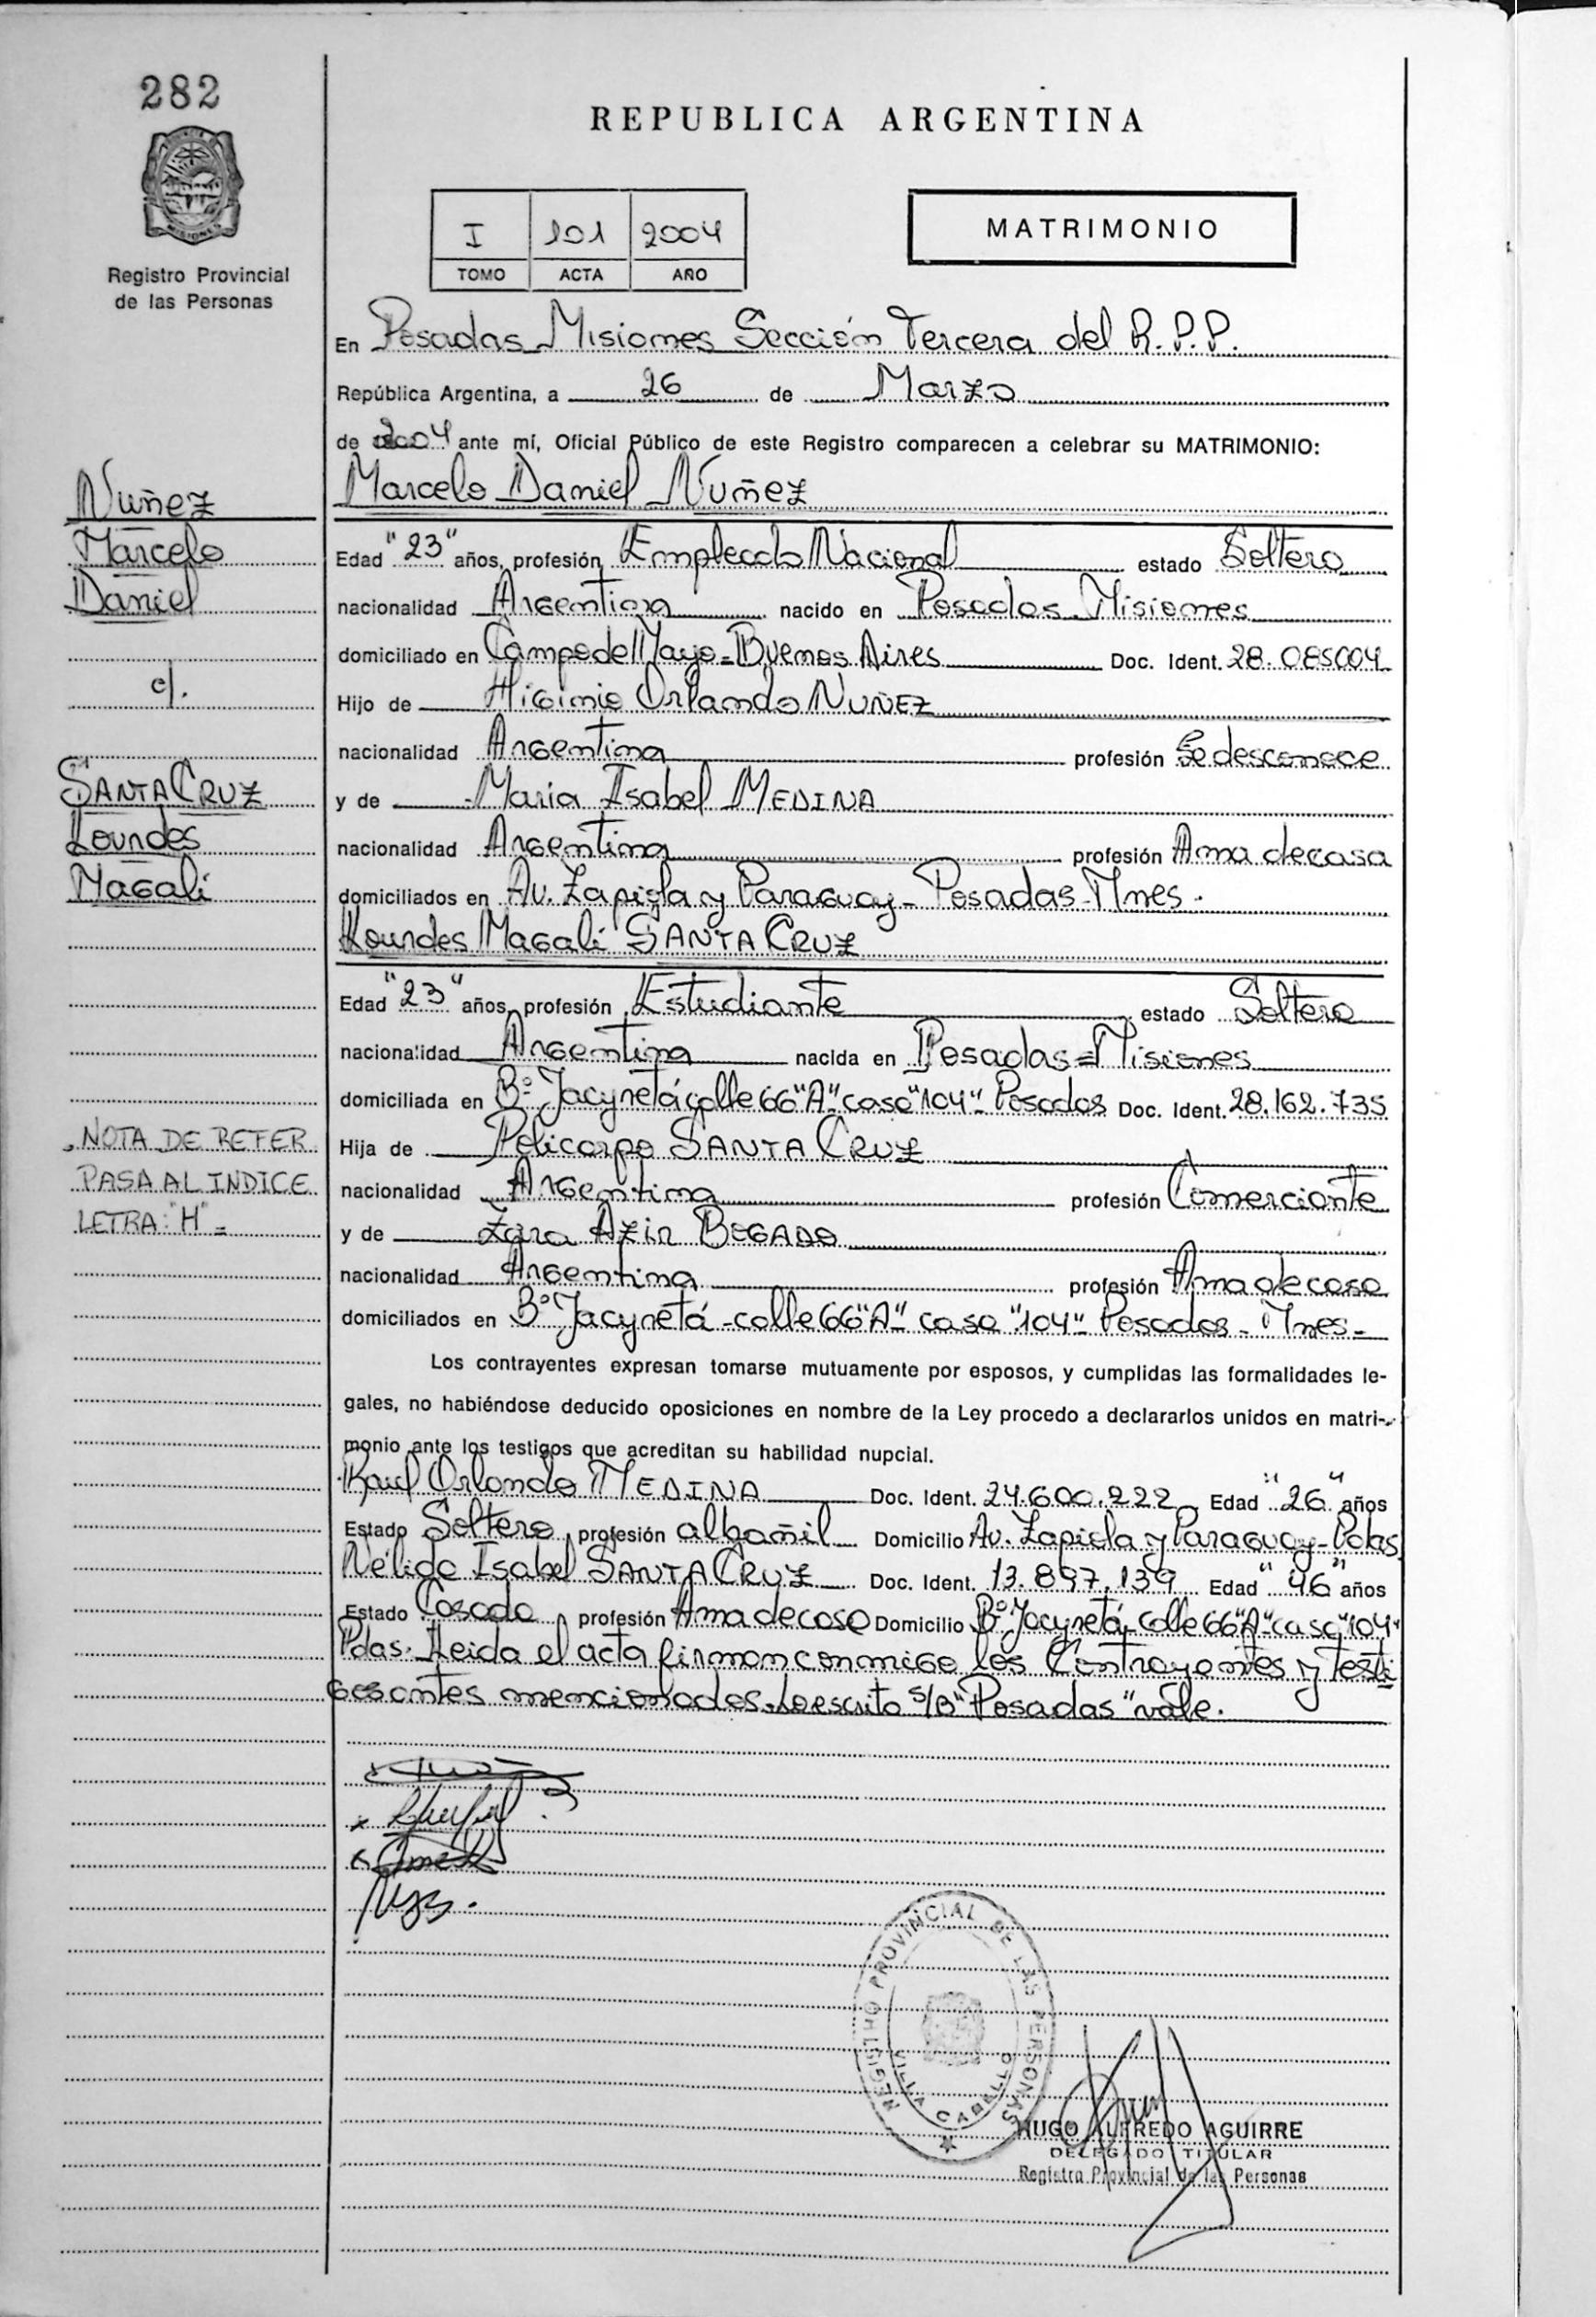 282
REPUBLICA ARGENTINA
MISIONES
Registro Provincial
de las Personas
I 101 2004
TOMO ACTA AÑO
MATRIMONIO
En Posadas Misiones Sección Tercera del R.P.P.
República Argentina, a 26 de Marzo
de 2004 ante mí, Oficial Público de este Registro comparecen a celebrar su MATRIMONIO:
Marcelo Daniel Nuñez
Nuñez
Marcelo
Daniel
c/.
SANTA CRUZ
Lourdes
Magali
NOTA DE REFER
PASA AL INDICE
LETRA: "H" =
Edad "23" años, profesión Empleado Nacional estado Soltero
nacionalidad Argentina nacido en Posadas Misiones
domiciliado en Campo de Mayo - Buenos Aires Doc. Ident. 28.085004
Hijo de Higinio Orlando NUÑEZ
nacionalidad Argentina profesión Se desconoce
y de Maria Isabel MEDINA
nacionalidad Argentina profesión Ama de casa
domiciliados en Av. Zapiola y Paraguay - Posadas - Mnes.
Lourdes Magali SANTA CRUZ
Edad "23" años, profesión Estudiante estado Soltera
nacionalidad Argentina nacida en Posadas = Misiones
domiciliada en B° Yacyretá calle 66 "A" casa "104" Posadas Doc. Ident. 28.162.735
Hija de Policarpo SANTA CRUZ
nacionalidad Argentina profesión Comerciante
y de Zara AZIR BOGADO
nacionalidad Argentina profesión Ama de casa
domiciliados en B° Yacyretá - calle 66 "A" casa "104" Posadas - Mnes -
Los contrayentes expresan tomarse mutuamente por esposos, y cumplidas las formalidades le-
gales, no habiéndose deducido oposiciones en nombre de la Ley procedo a declararlos unidos en matri-
monio ante los testigos que acreditan su habilidad nupcial.
Raul Orlando MEDINA Doc. Ident. 24.600.222 Edad "26" años
Estado Soltero profesión albañil Domicilio Av. Zapiola y Paraguay - Pdas
Nélida Isabel SANTA CRUZ Doc. Ident. 13.897.139 Edad "46" años
Estado Casada profesión Ama de casa Domicilio B° Yacyretá calle 66 "A" casa "104"
Pdas. Leida el acta firman conmigo los Contrayentes y Testi
gos antes mencionados. Lo escrito S/B "Posadas" vale.
REGISTRO PROVINCIAL DE LAS PERSONAS
VILLA CABELLO
HUGO ALFREDO AGUIRRE
DELEGADO TITULAR
Registro Provincial de las Personas